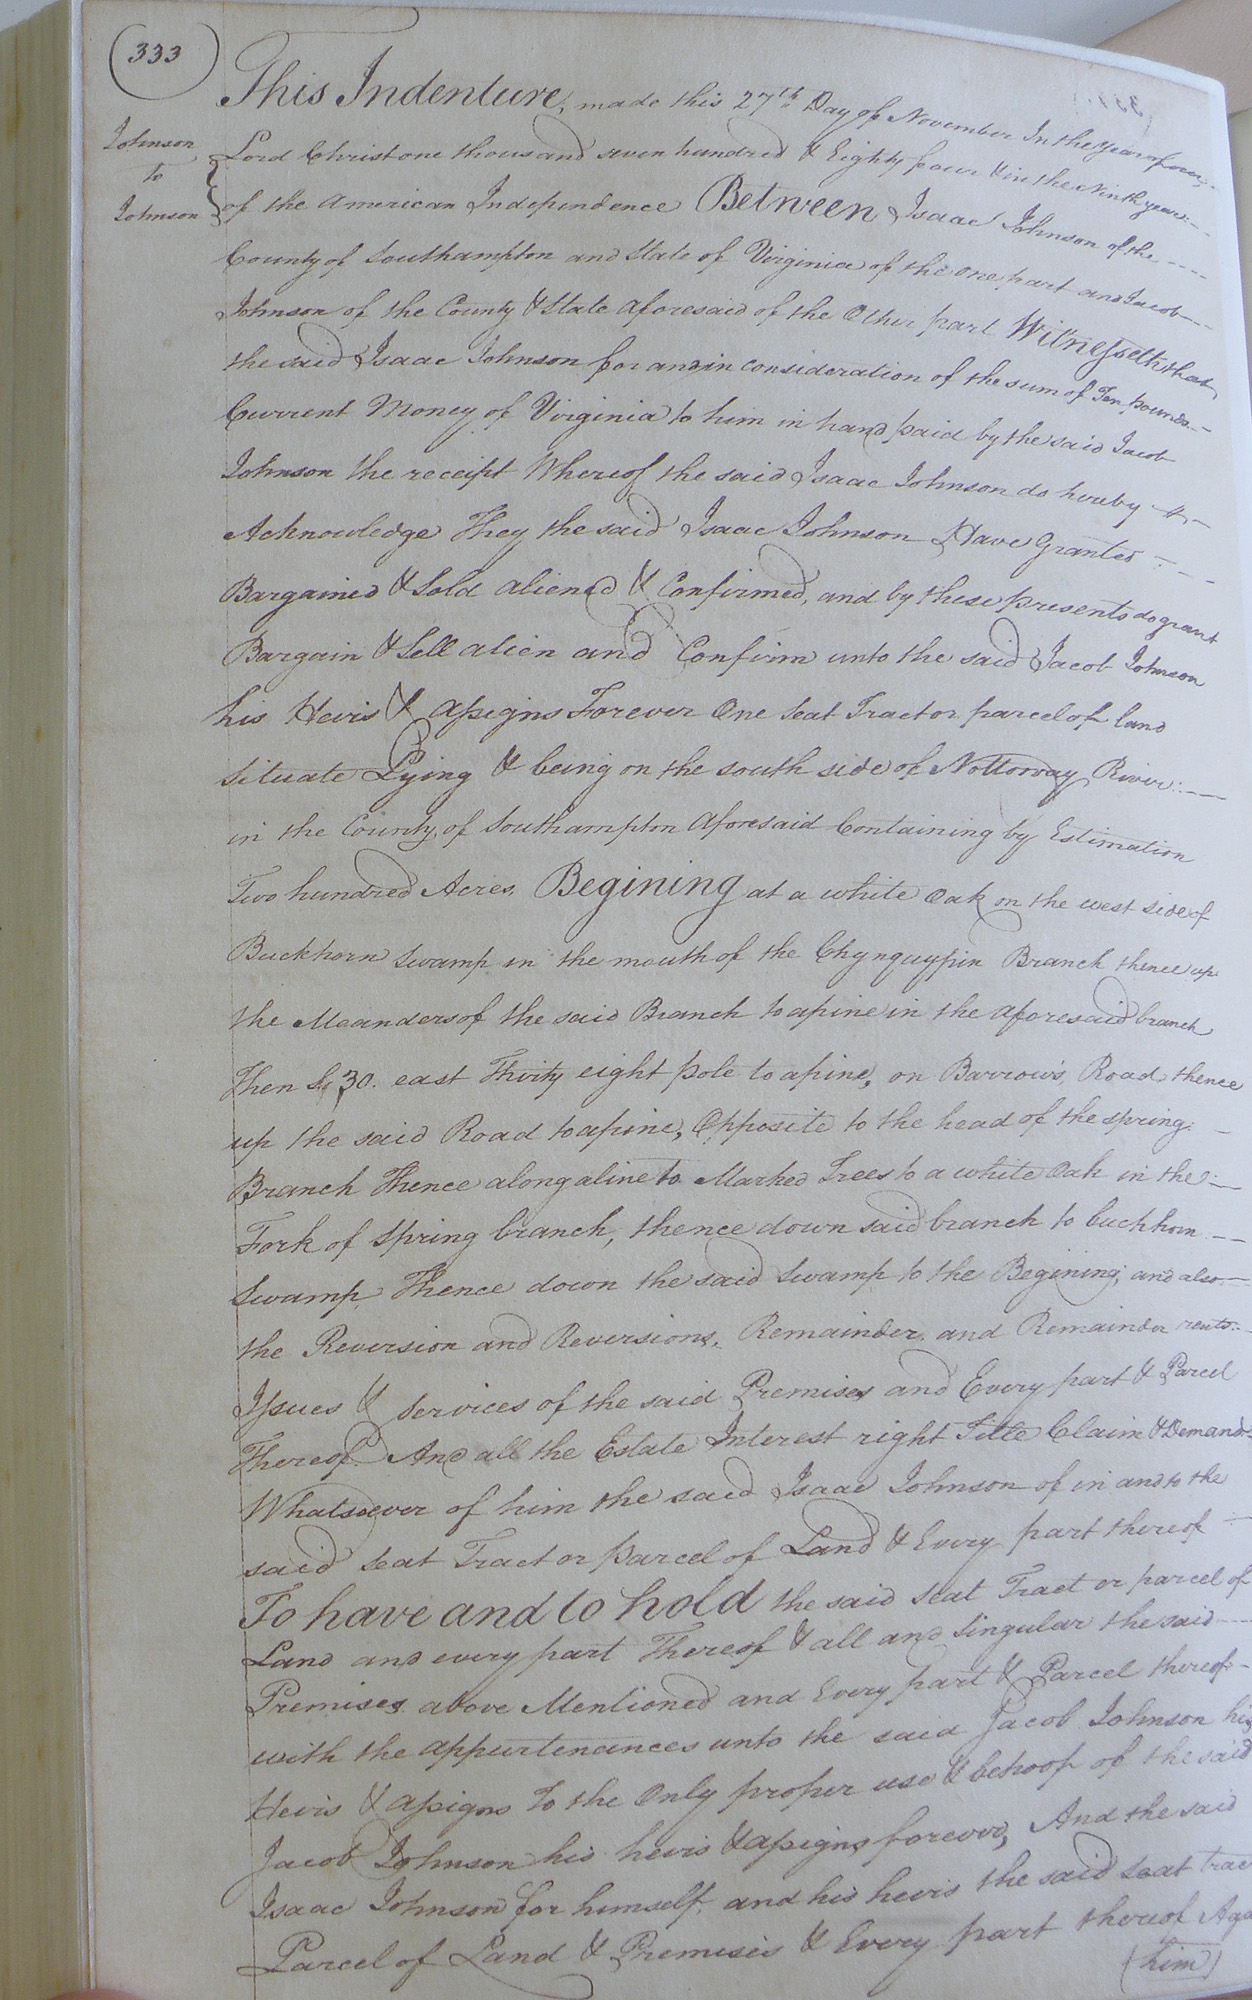 333
Johnson
to
Johnson
This Indenture, made this 27th Day of November In the Year of our
Lord Christ one thousand seven hundred & Eighty four & in the Ninth year
of the American Independence Between Isaac Johnson of the
County of Southampton and State of Virginia of the one part and Jacob
Johnson of the County & State aforesaid of the Other part Witnesseth that
the said Isaac Johnson for and in consideration of the sum of Ten pounds
Current Money of Virginia to him in hand paid by the said Jacob
Johnson the receipt Whereof the said Isaac Johnson do hereby
Acknowledge They the said Isaac Johnson Have Granted
Bargained & Sold aliened & Confirmed, and by these presents do grant
Bargain & Sell alien and Confirm unto the said Jacob Johnson
his Heirs & assigns Forever One Seat Tract or parcel of land
Situate Lying & being on the south side of Nottoway River
in the County of Southampton Aforesaid Containing by Estimation
Two hundred Acres. Begining at a white Oak on the west side of
Buckhorn Swamp in the mouth of the Chynquypin Branch thence up
the Meanders of the said Branch to a pine in the aforesaid branch
Then So 30. east Thirty eight pole to a pine, on Barrow's Road thence
up the said Road to a pine, Opposite to the head of the spring
Branch Thence along a line to Marked Trees to a white Oak in the
Fork of Spring branch, thence down said branch to buckhorn
Swamp Thence down the said Swamp to the Begining, and also
the Reversion and Reversions, Remainder and Remainder rents
Issues & Services of the said Premises and Every part & Parcel
Thereof. And all the Estate Interest right Title Claim & Demand
Whatsoever of him the said Isaac Johnson of in and to the
said Seat Tract or parcel of Land & Every part thereof
To have and to hold the said Seat Tract or parcel of
Land and every part Thereof & all and Singular the said
Premises above Mentioned and Every part & Parcel thereof
with the appurtenances unto the said Jacob Johnson his
Heirs & assigns To the Only proper use & behoof of the said
Jacob Johnson his heirs & assigns forever, And the said
Isaac Johnson for himself, and his heirs the said Seat trac
Parcel of Land & Premises & Every part thereof Aga
(him)